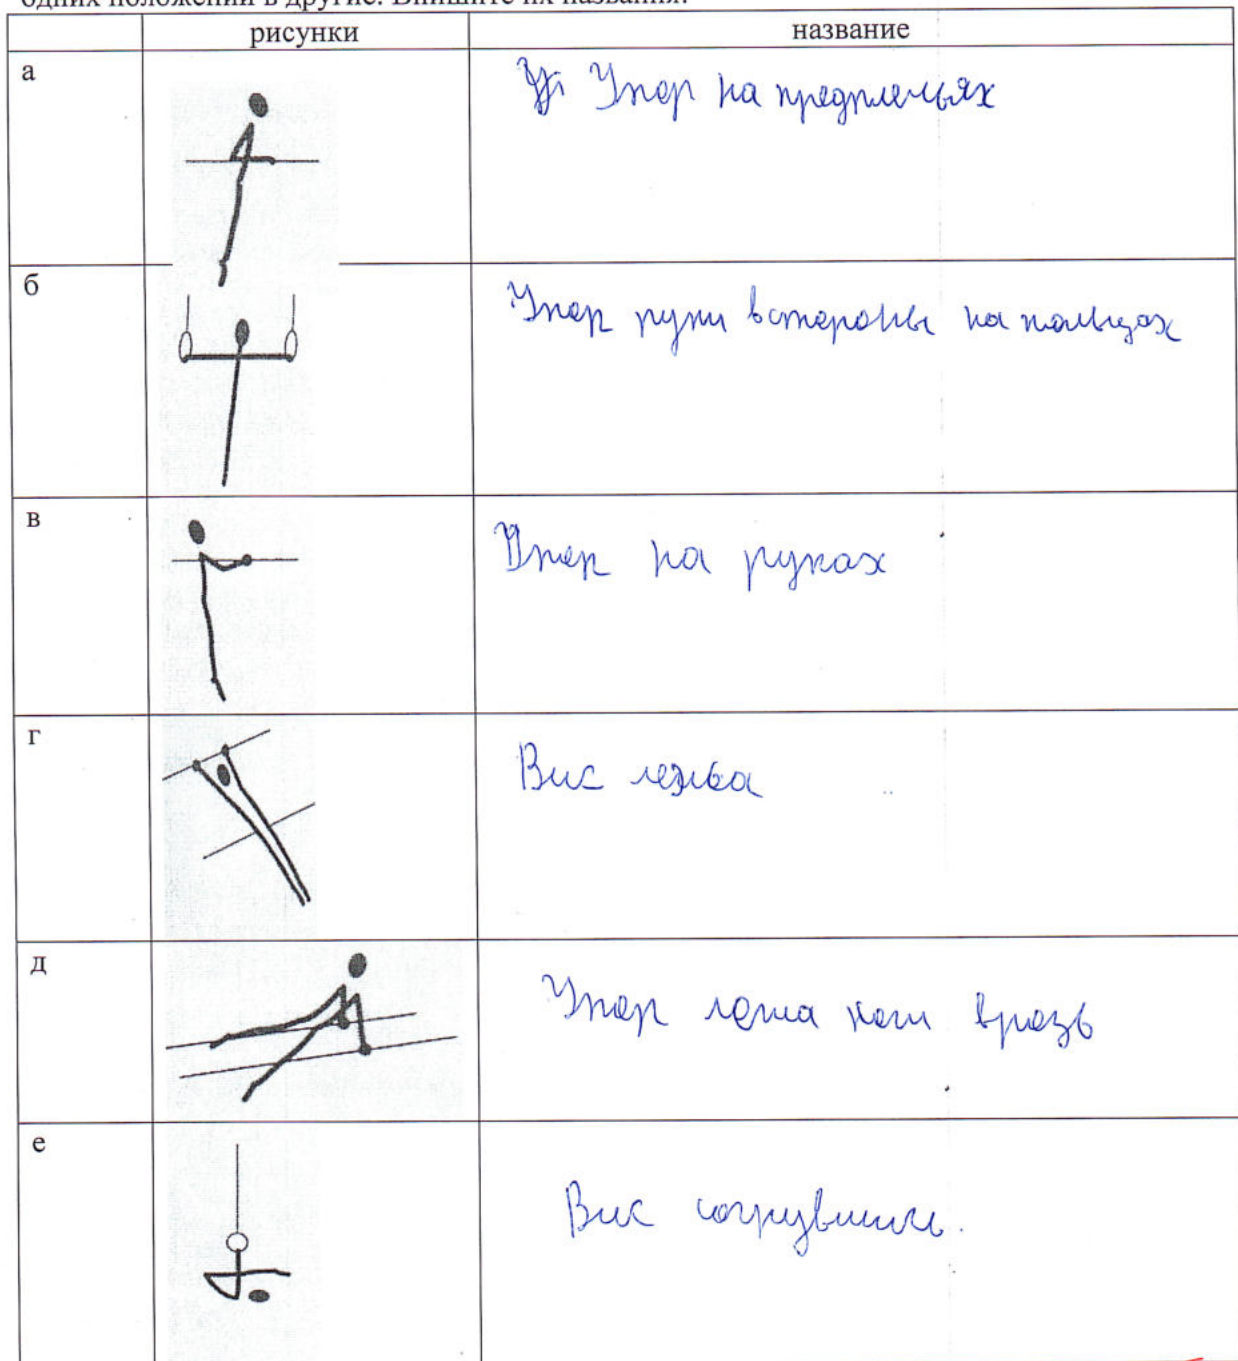 одних положений в другие. Впишите их названия.
рисунки название
а Упор на предплечьях
б Упор руки в стороны на кольцах
в Упор на руках
г Вис лежа
д Упор лежа ноги врозь
е Вис согнувшись.